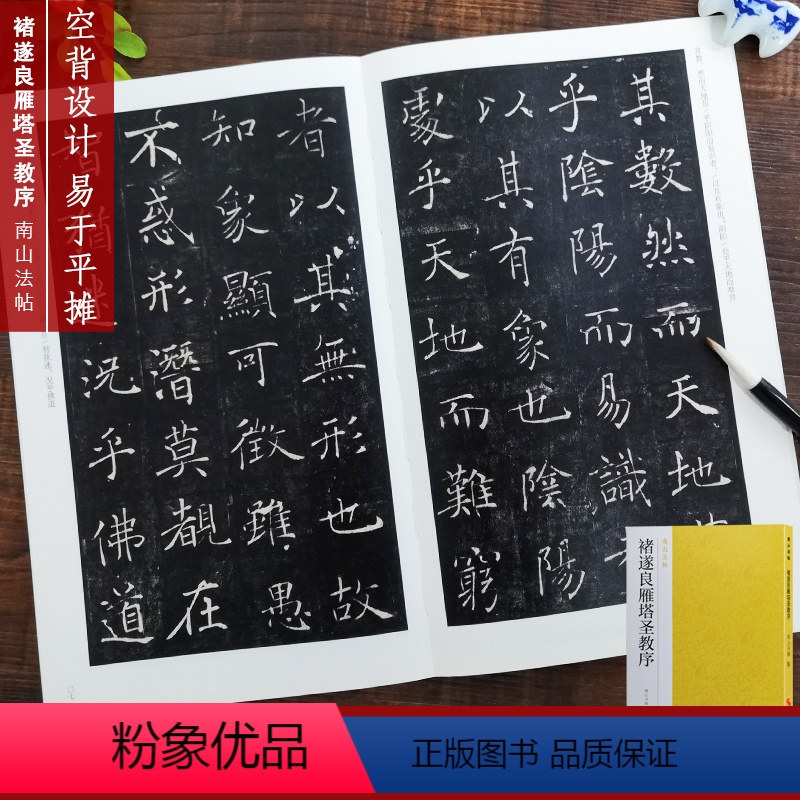 空背设计 易于平摊
褚遂良雁塔圣教序 南山法帖
其數然而天地
乎陰陽而易識
以其有象也陰陽
處乎天地而難窮
者以其無形也故
知象顯可徵雖愚
不惑形潛莫覩在
智猶迷況乎佛道
〇七
南山法帖
褚遂良雁塔圣教序
褚遂良雁塔圣教序
粉象优品
正版图书 品质保证